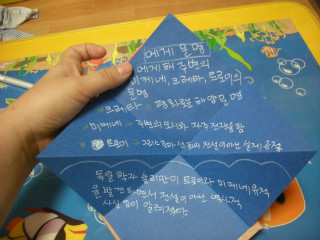 에게 문명
에게해 주변의
미케네, 크레타, 트로이의
문명
크레타 → 평화로운 해양 문명
미케네 → 주변의 도시와 자주 전쟁을 함
트로이 → 그리스 로마 신화 전설이 아닌 실제 유적
독일 학자 슐리만이 트로이와 미케네 유적
을 발견하면서 전설이 아닌 역사적
사실임이 알려졌다